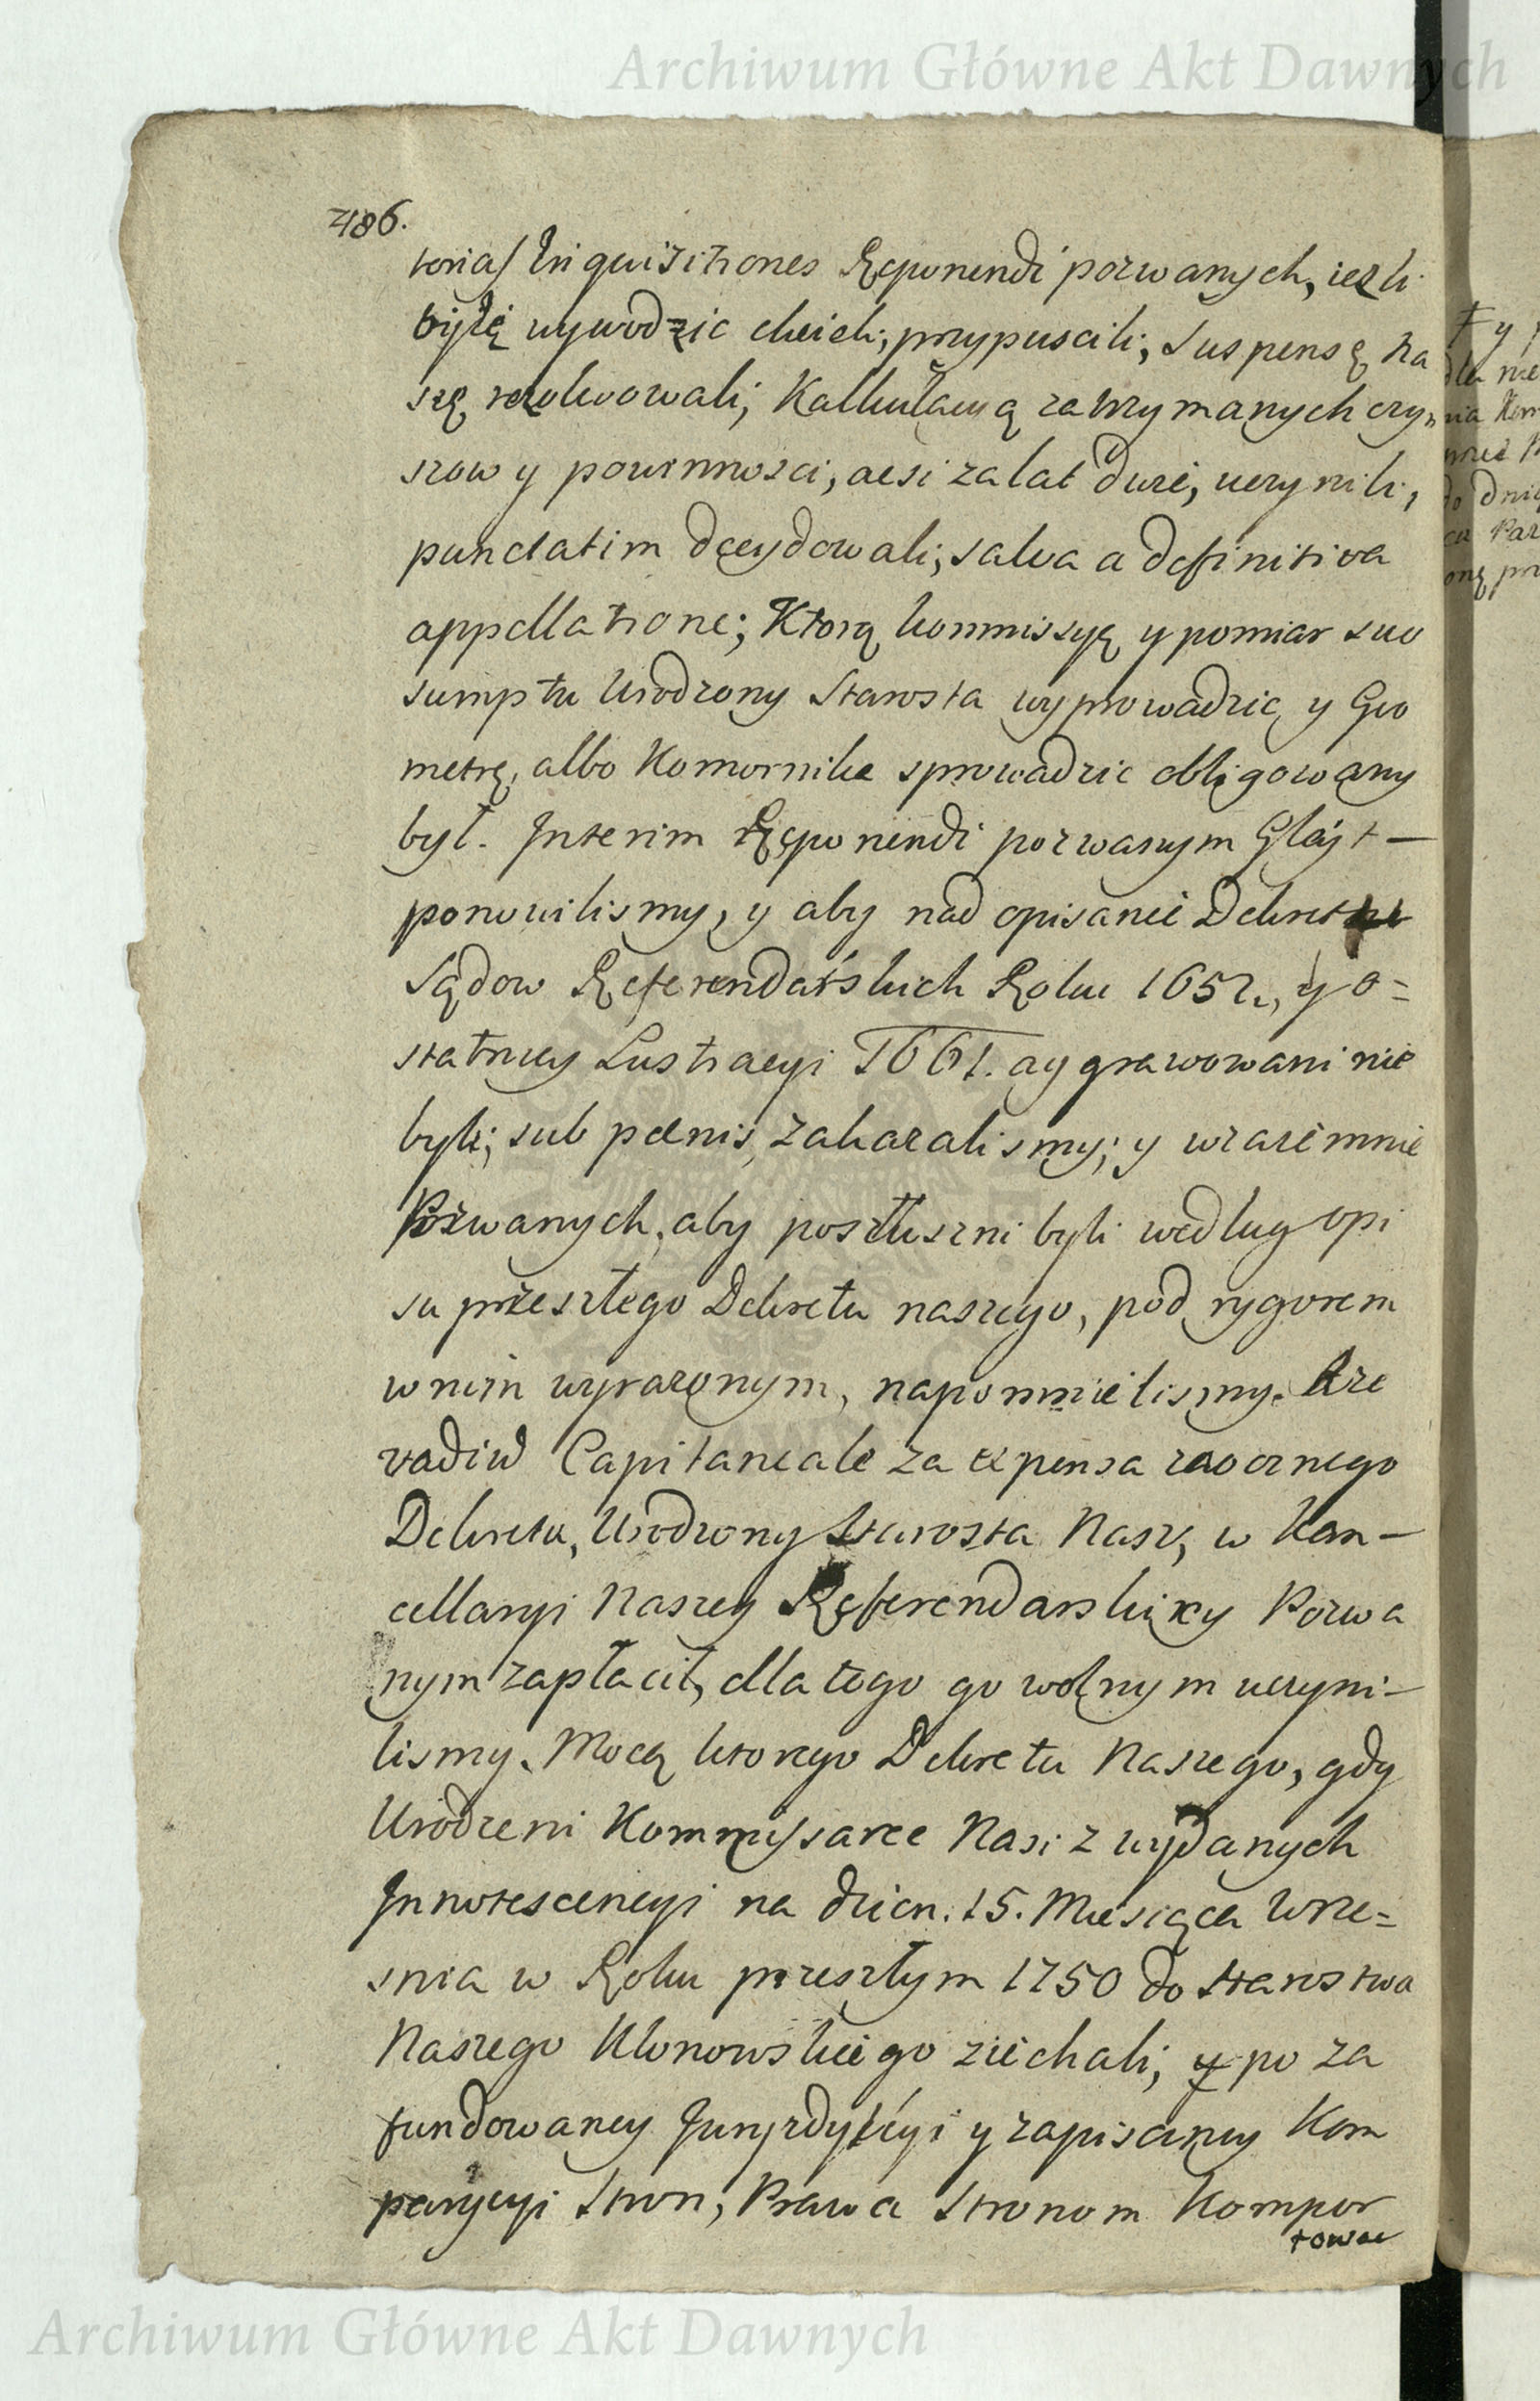 Archiwum Główne Akt Dawnych
486.
torias Inquisitiones Reponendi pozwanych, iezli
byłę wywodzic chcieli, przypuscili, Suspensę na
się rezolwowali; Kalkulacyą zatrzymanych czyn,
szow y powinnosci, acsi za lat dwie, uczynili,
punctatim decydowali; salva a definitiva
appellatione; Ktorą kommissyę y pomiar suo
sumptu Urodzony Starosta wyprowadzic, y Geo
metrę, albo Komornika sprowadzic obligowany
był. Interim Reponendi pozwanym Gleyt —
ponowilismy, y aby nad opisanie Dekretu
Sądow Referendarskich Roku 1652., y o=
statniey Lustracyi 1661. aggrawowani nie
byli; sub pœnis, zakazalismy; y wzaiemnie
Pozwanych, aby poszłuszni byli według opi
su przeszłego Dekretu naszego, pod rygorem
w nim wyrazonym, napomnielismy. A ze
vadiũ Capitaneale za expensa zaocznego
Dekretu, Urodzony Starosta Nasz, w Kan—
cellaryi Naszey Referendarskiey Pozwa
nym zapłacił, dla tego go wolnym uczyni—
lismy. Mocą ktorego Dekretu Naszego, gdy
Urodzeni Kommissarze Nasi z wydanych
Innotescencyi na dzien. 15. Miesiąca Wrze=
snia w Roku przeszłym 1750 do Starostwa
Naszego Klonowskiego ziechali; y po za
fundowaney Juryzdykcyi y zapisaney Kom
parycyi Stron, Prawa Stronom Kompor
towac
Archiwum Główne Akt Dawnych